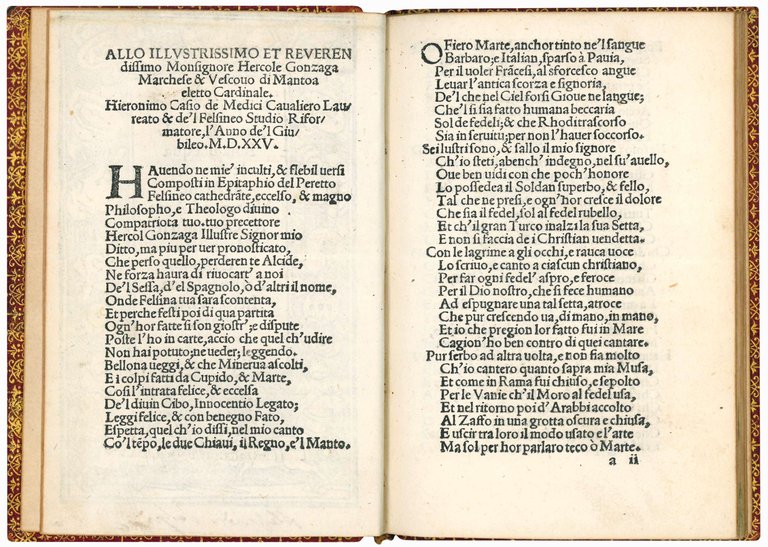 ALLO ILLVSTRISSIMO ET REVEREN
dissimo Monsignore Hercole Gonzaga
Marchese & Vescouo di Mantoa
eletto Cardinale.
Hieronimo Casio de Medici Caualiero Lau
reato & de'l Felsineo Studio Rifor-
matore, l'Anno de'l Giu-
bileo. M.D.XXV.
HAuendo ne mie' inculti, & flebil uersi
Composti in Epitaphio del Peretto
Felsineo cathedrãte, eccelso, & magno
Philosopho, e Theologo diuino
Compatriota tuo. tuo precettore
Hercol Gonzaga Illustre Signor mio
Ditto, ma piu per uer pronosticato,
Che perso quello, perderen te Alcide,
Ne forza haura di riuocart' a noi
De'l Sessa, d'el Spagnolo, ò d'altri il nome,
Onde Felsina tua sara scontenta,
Et perche festi poi di qua partita
Ogn'hor fatte si son giostr'; e dispute
Poste l'ho in carte, accio che quel ch'udire
Non hai potuto; ne ueder; leggendo.
Bellona ueggi, & che Minerua ascolti,
E i colpi fatti da Cupido, & Marte,
Cosi l'intrata felice, & eccelsa
De'l diuin Cibo, Innocentio Legato;
Leggi felice, & con benegno Fato,
Espetta, quel ch'io dissi, nel mio canto
Cò'l tẽpò, le due Chiaui, il Regno, e'l Manto.
O Fiero Marte, anchor tinto ne'l sangue
Barbaro; e Italian, sparso à Pauia,
Per il uoler Frãcesi, al sforcesco angue
Leuar l'antica scorza e signoria,
De'l che nel Ciel forsi Gioue ne langue;
Che'l si sia fatto humana beccaria
Sol de fedeli; & che Rhodi trascorso
Sia in seruitu; per non l'hauer soccorso.
Sei lustri sono, & sallo il mio signore
Ch'io steti, abench' indegno, nel su' auello,
Oue ben uidi con che poch'honore
Lo possedea il Soldan superbo, & fello,
Tal che ne presi, e ogn'hor cresce il dolore
Che sia il fedel, sol al fedel rubello,
Et ch'il gran Turco inalzi la sua Setta,
E non si faccia de i Christian uendetta.
Con le lagrime a gli occhi, e rauca uoce
Lo scriuo, e canto a ciascun christiano,
Per far ogni fedel' aspro, e feroce
Per il Dio nostro, che si fece humano
Ad espugnare una tal setta, atroce
Che pur crescendo ua, di mano, in mano,
Et io che pregion lor fatto fui in Mare
Cagion'ho ben contro di quei cantare.
Pur serbo ad altra uolta, e non sia molto
Ch'io cantero quanto sapra mia Musa,
Et come in Rama fui chiuso, e sepolto
Per le Vanie ch'il Moro al fedel usa,
Et nel ritorno poi d'Arabbi accolto
Al Zaffo in una grotta oscura e chiusa,
E uscir tra loro il modo usato e l'arte
Ma sol per hor parlaro teco ò Marte.
a ii